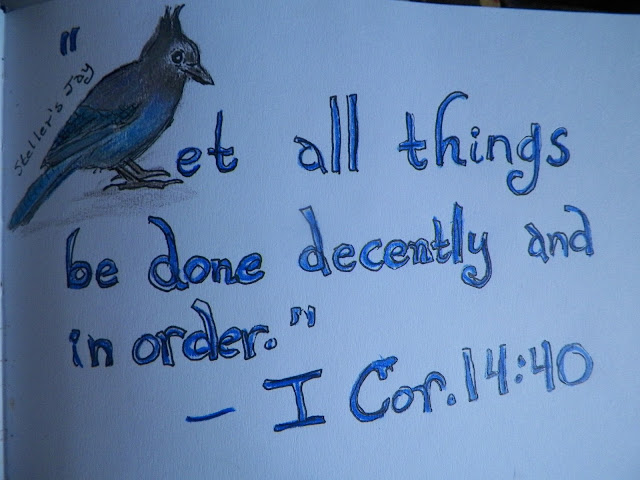 "
Steller's Jay
et all things
be done decently and
in order."
— I Cor. 14:40